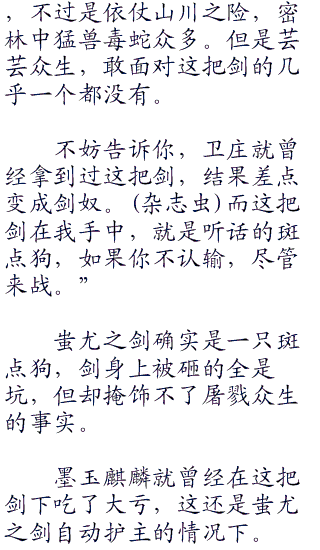 ，不过是依仗山川之险，密
林中猛兽毒蛇众多。但是芸
芸众生，敢面对这把剑的几
乎一个都没有。
不妨告诉你，卫庄就曾
经拿到过这把剑，结果差点
变成剑奴。(杂志虫)而这把
剑在我手中，就是听话的斑
点狗，如果你不认输，尽管
来战。”
蚩尤之剑确实是一只斑
点狗，剑身上被砸的全是
坑，但却掩饰不了屠戮众生
的事实。
墨玉麒麟就曾经在这把
剑下吃了大亏，这还是蚩尤
之剑自动护主的情况下。